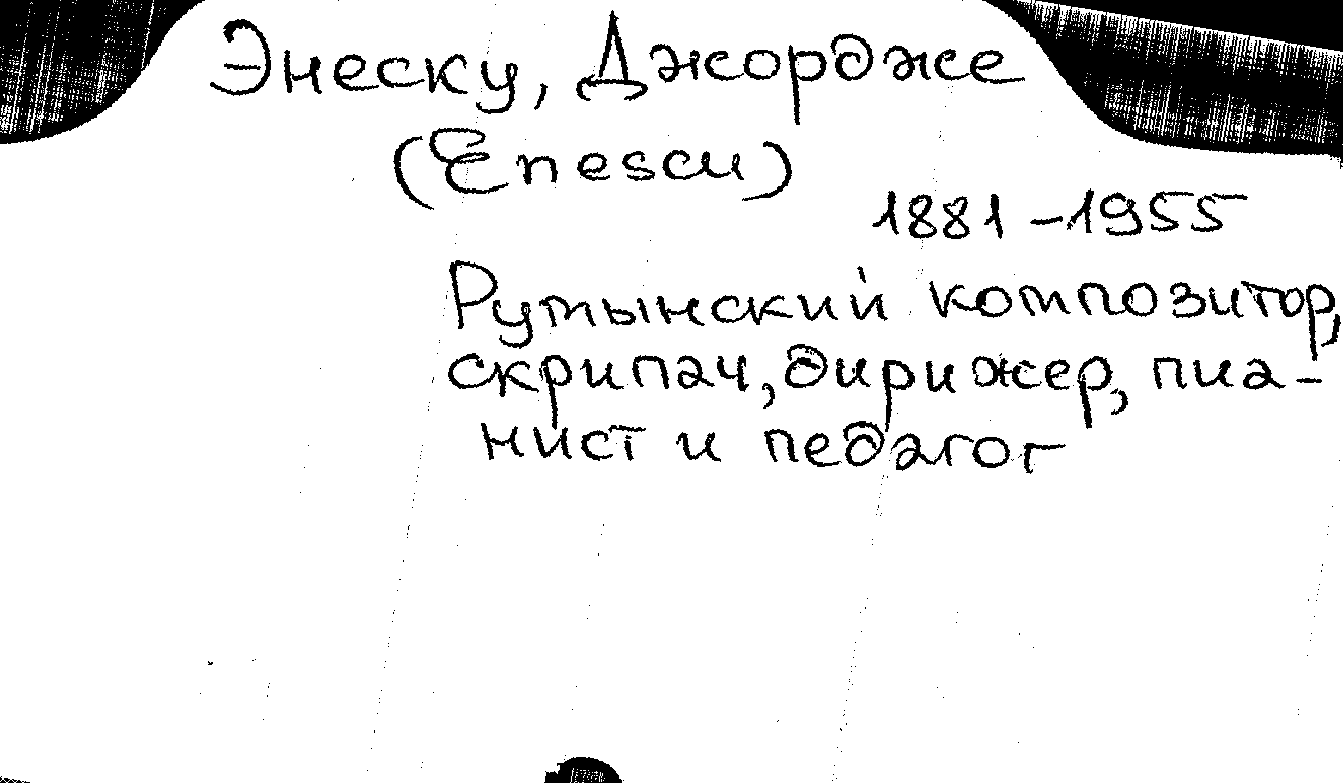 Энеску, Джордже
(Enescu)
1881-1955
Румынский композитор,
скрипач, дирижер, пиа-
нист и педагог